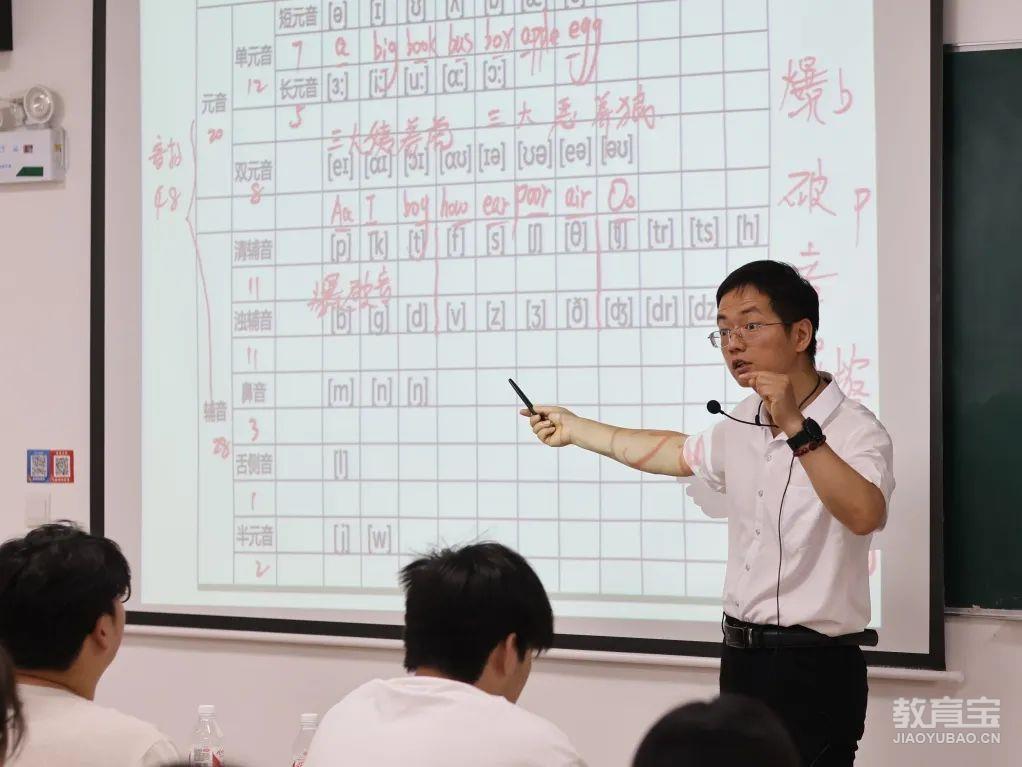 短元音 [ə] [ɪ] [ʊ] [ʌ]
单元音 7 a big book bus box apple egg
12 长元音 [ɜ:] [i:] [u:] [ɑ:] [ɔ:]
元音 5
20 三大 三大恶
双元音 [eɪ] [aɪ] [ɔɪ] [aʊ] [ɪə] [ʊə] [eə] [əʊ]
音标 8
48 Aa I boy how ear poor air Oo
清辅音 [p] [k] [t] [f] [s] [ʃ] [θ] [tʃ] [tr] [ts] [h]
11 爆破音
浊辅音 [b] [g] [d] [v] [z] [ʒ] [ð] [dʒ] [dr] [dz
11
鼻音 [m] [n] [ŋ]
辅音 3
28
舌侧音 [l]
1
半元音 [j] [w]
2
爆 b
破 p
音
教育宝
JIAOYUBAO.CN